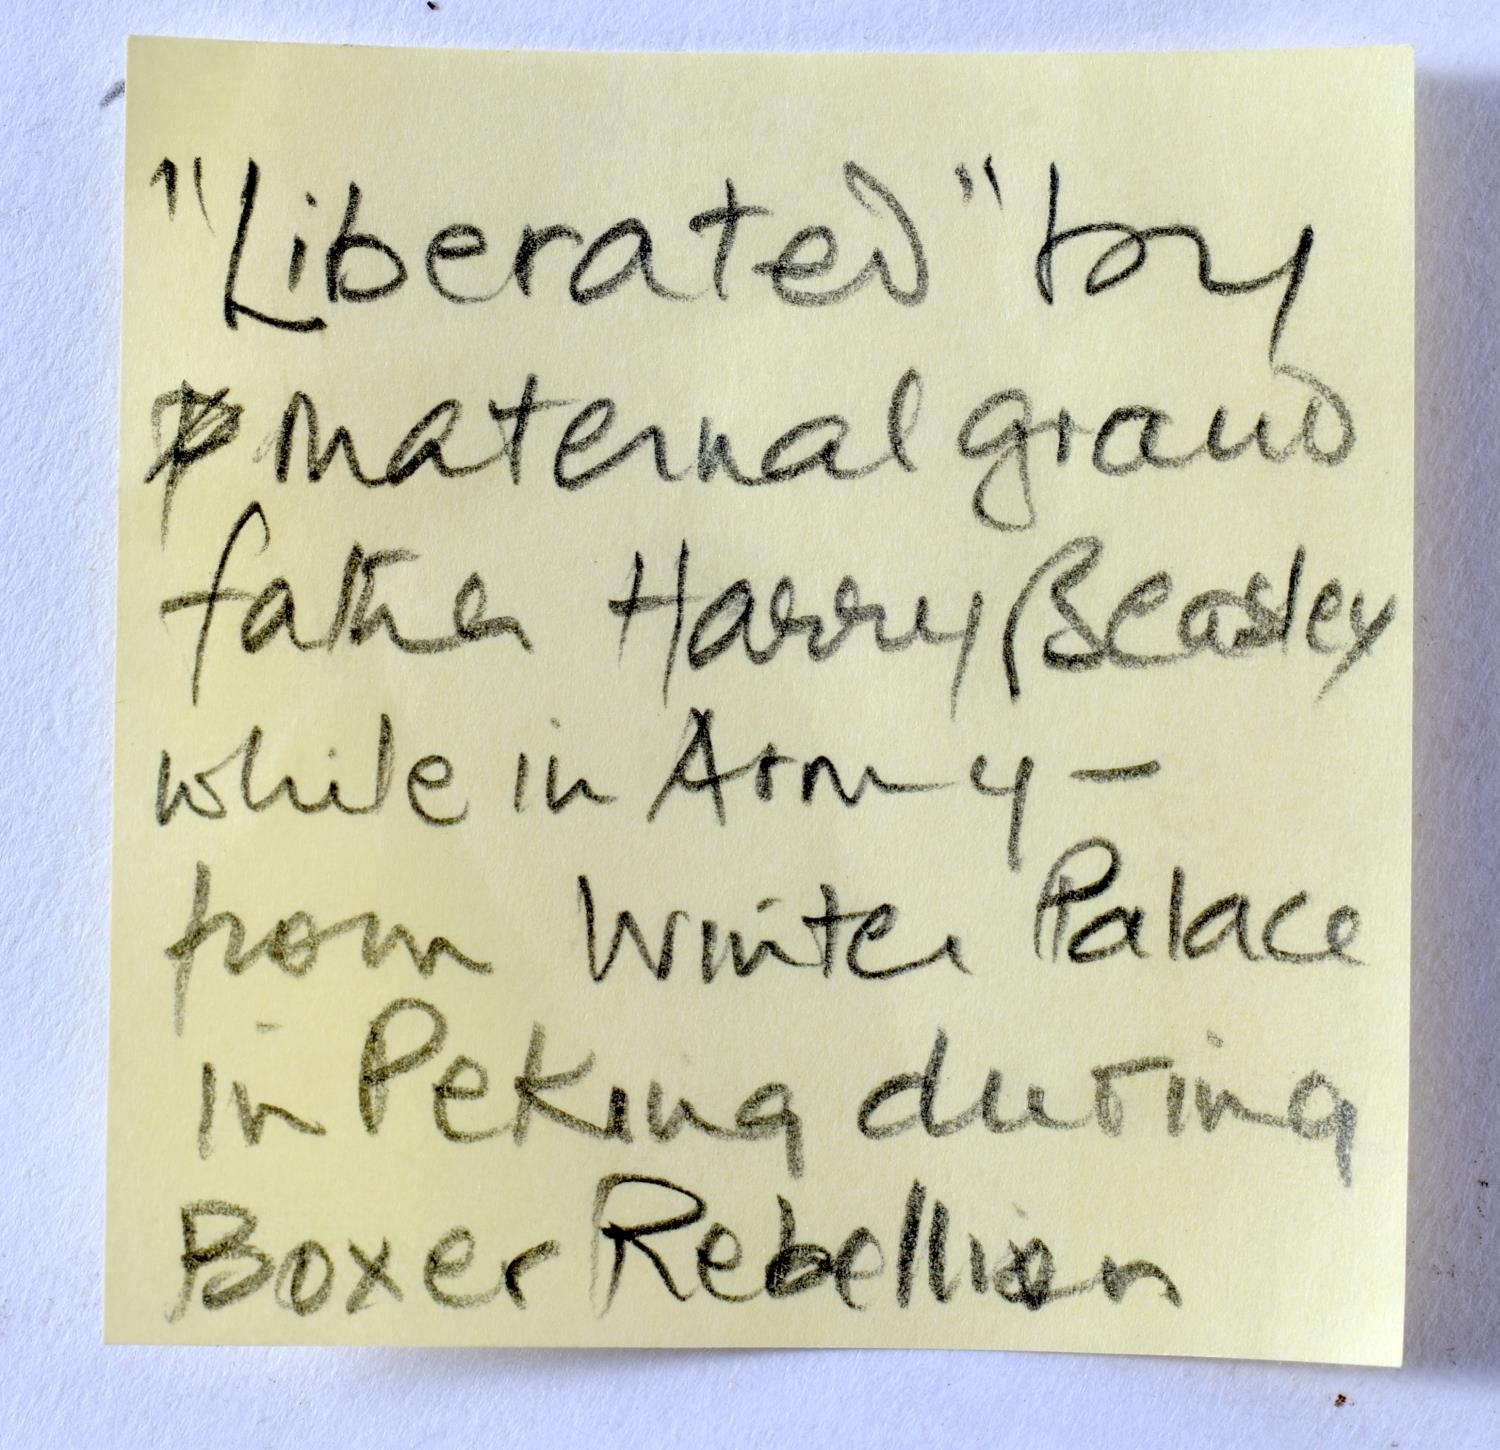 "Liberated" by
maternal grand
father Harry Beasley
while in Army -
from Winter Palace
in Peking during
Boxer Rebellion